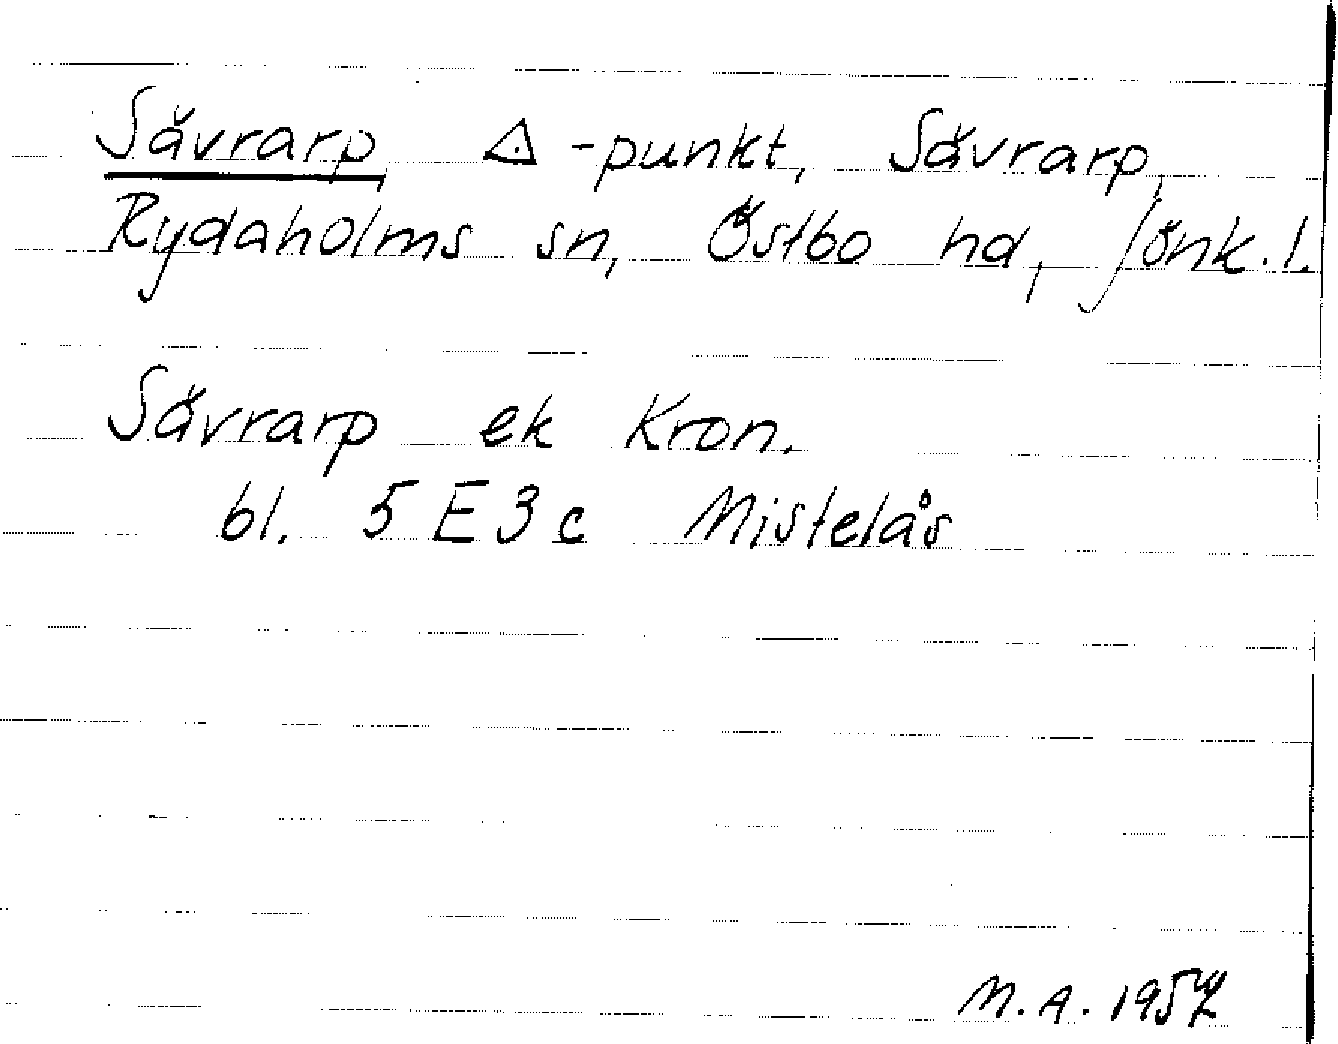 Sävrarp △-punkt, Sävrarp,
Rydaholms sn, Östbo hd, Jönk.l.
Sävrarp ek Kron.
bl. 5 E 3 c Mistelås
M.A. 1957